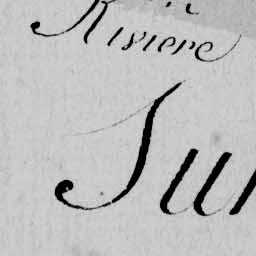 Rivière
Sur